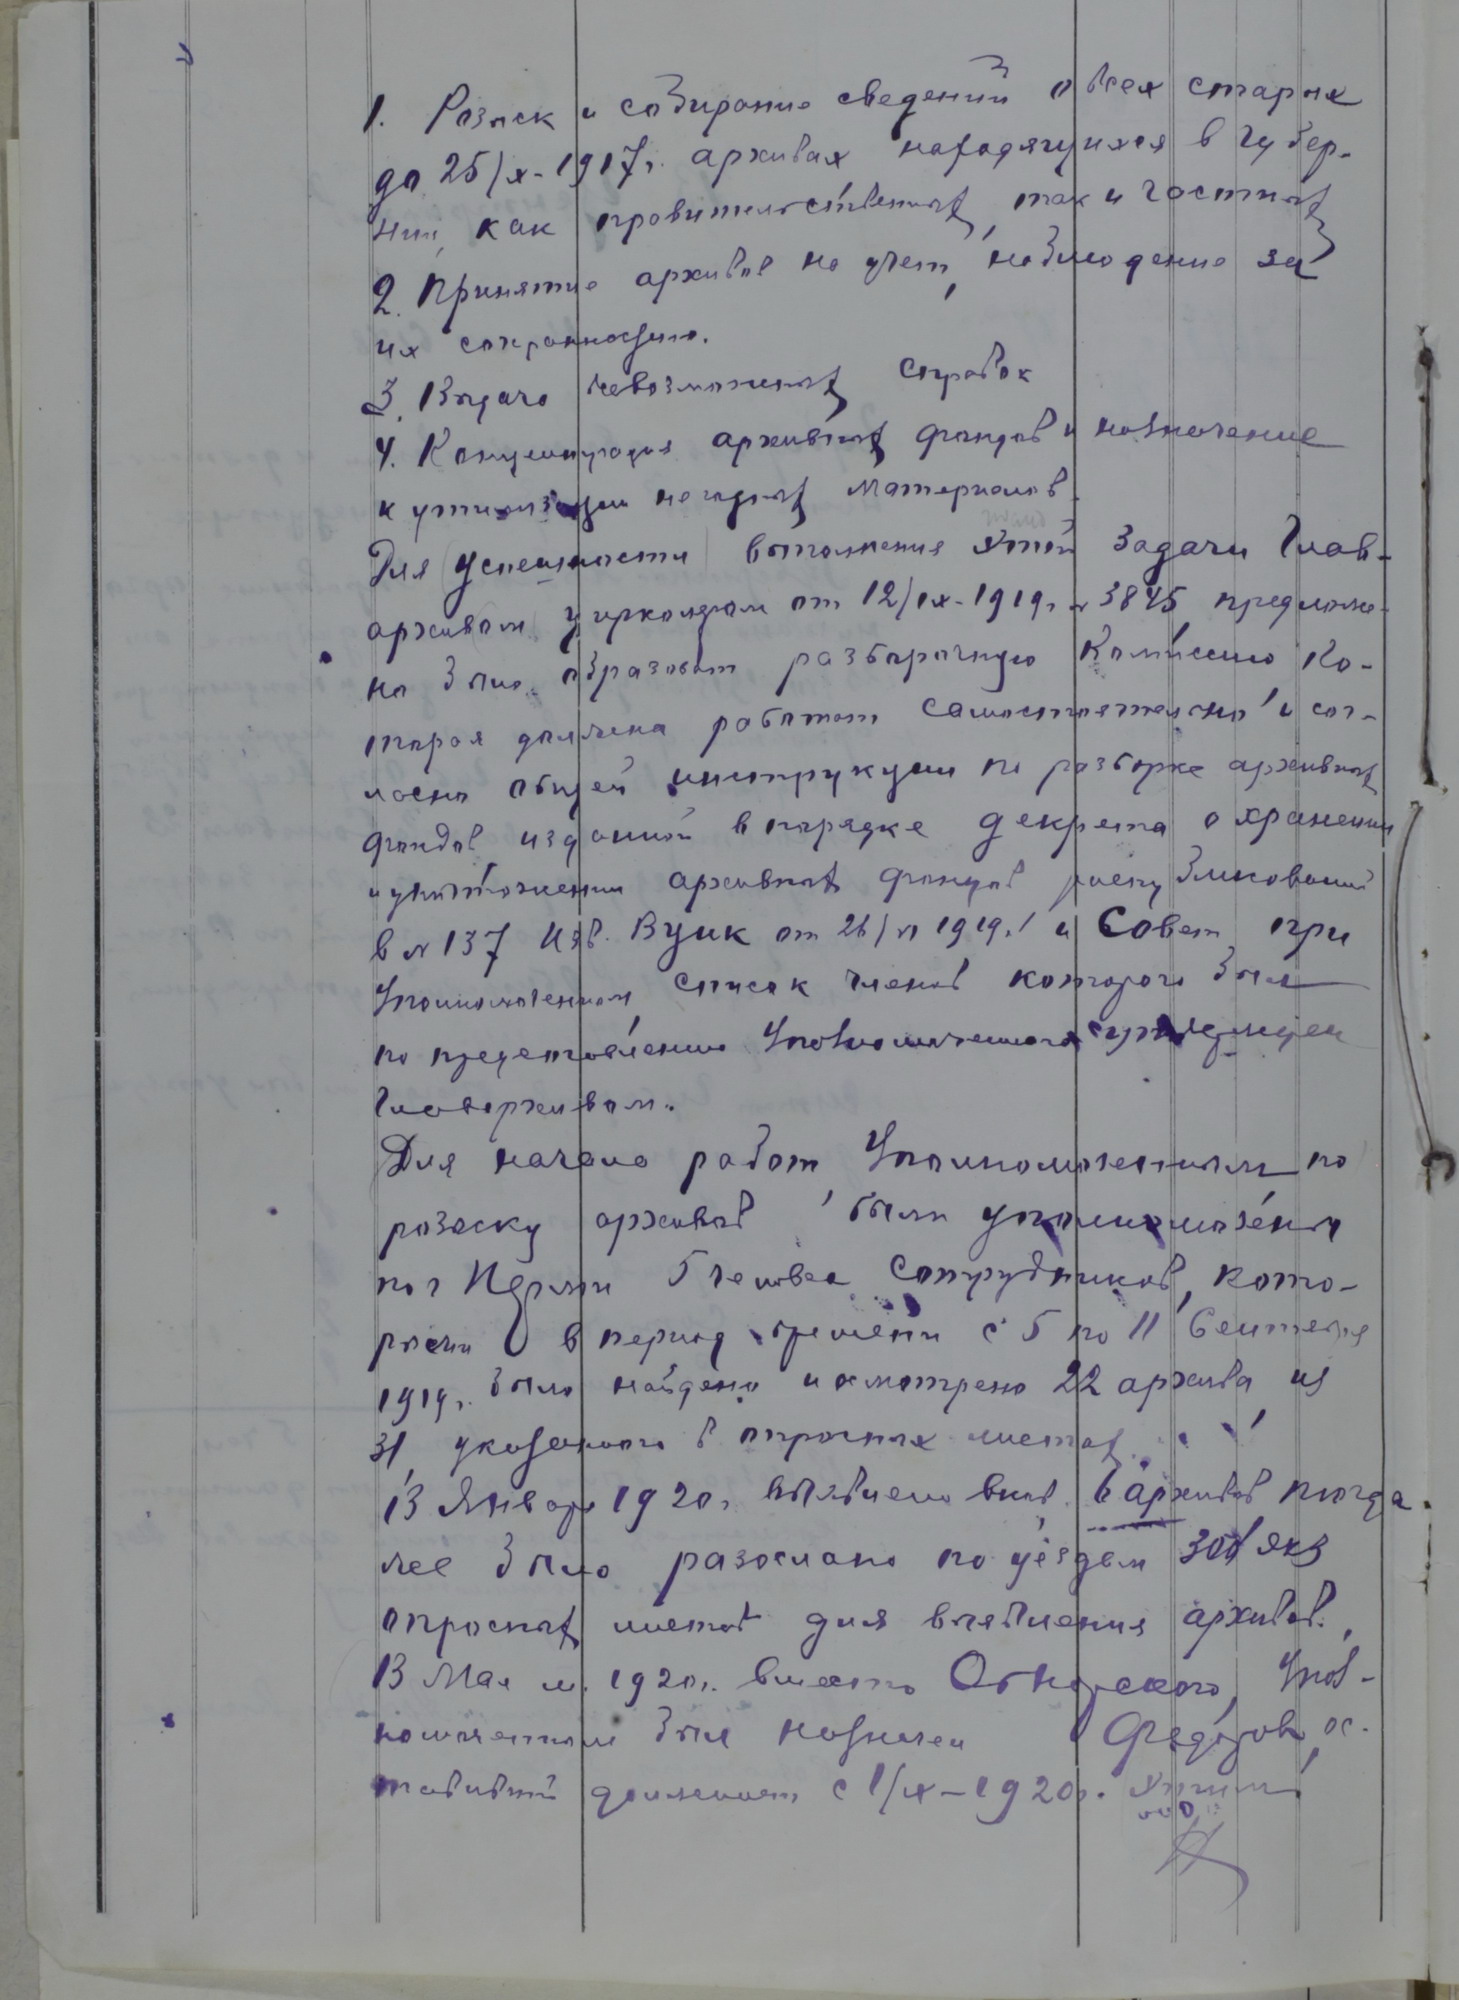 1. Розыск и собирание сведений о всех старых
до 25/X-1917г. архивах находящихся в губер-
нии, как правительственных, так и частных
2. Принятие архивов на учет, наблюдение за
их сохранностью.
3. Выдача всевозможных справок
4. Концентрация архивных фондов и назначение
к утилизации негодных материалов.
Для успешности выполнения этой задачи Глав-
архивом, циркуляром от 12/IX-1919г. № 3845 предложе-
но было образовать разборочную Комиссию ко-
торая должна работать самостоятельно и сог-
ласно общей инструкции по разборке архивных
фондов изданной в порядке декрета о хранении
и уничтожении архивных фондов
в № 137 Изв. ВЦИК от 26/VI 1919г. и Совет при
Уполномоченном, список членов которого был
по представлению Уполномоченного
Главархивом.
Для начала работ Уполномоченным по
розыску архивов были уполномочены
по г. 5 человек сотрудников, кото-
рыми в период времени с 5 по 11 Сентября
1919г. было найдено и осмотрено 22 архива из
31 указанного в опросных листах.
13 Января 1920г. выявлено вновь 6 архивов
нее было разослано по уездам экз
опросных листов для выявления архивов.
13 Мая м. 1920г. вместо Упол-
номоченным был назначен Федоров, ос-
тавивший должность с 1/IX-1920г.